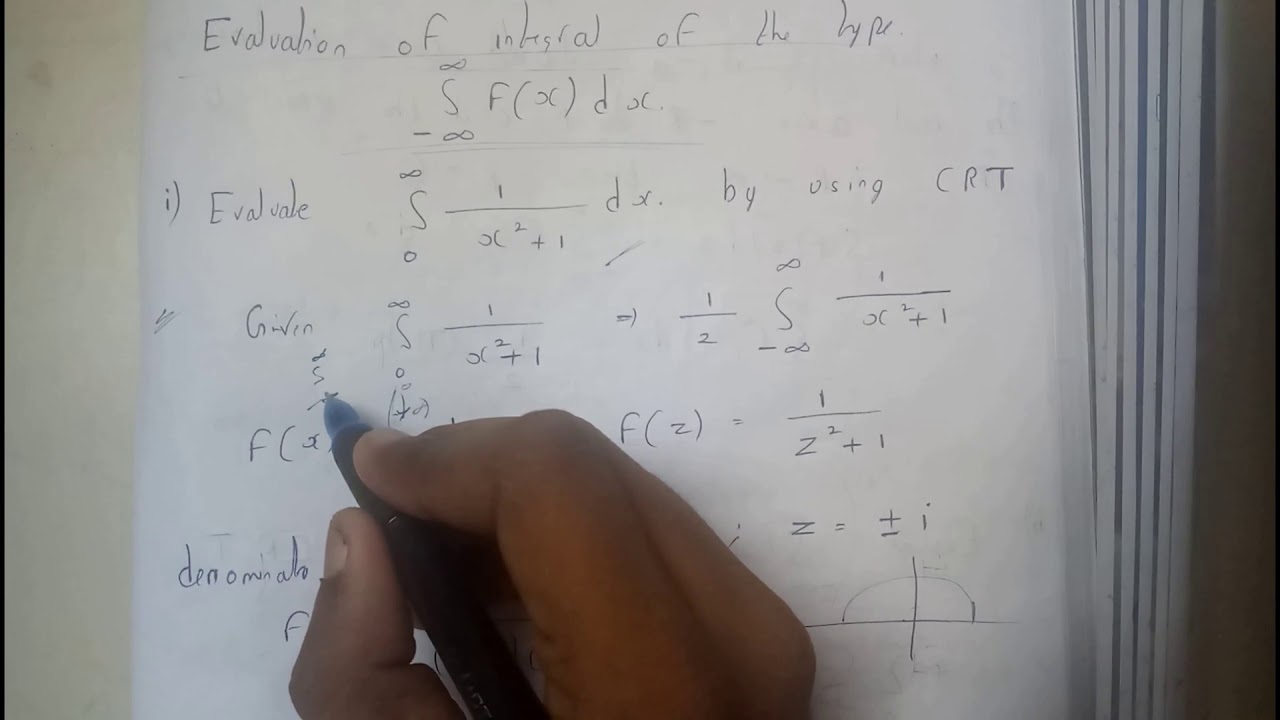 Evaluation of integral of the type.
∞ ∫ -∞ F(x) dx.
i) Evaluate ∞ ∫ 0 1/(x²+1) dx. by using CRT
Given ∞ ∫ 0 1/(x²+1) ⇒ 1/2 ∞ ∫ -∞ 1/(x²+1)
F(x F(z) = 1/(z²+1)
z = ± i
denominato
F